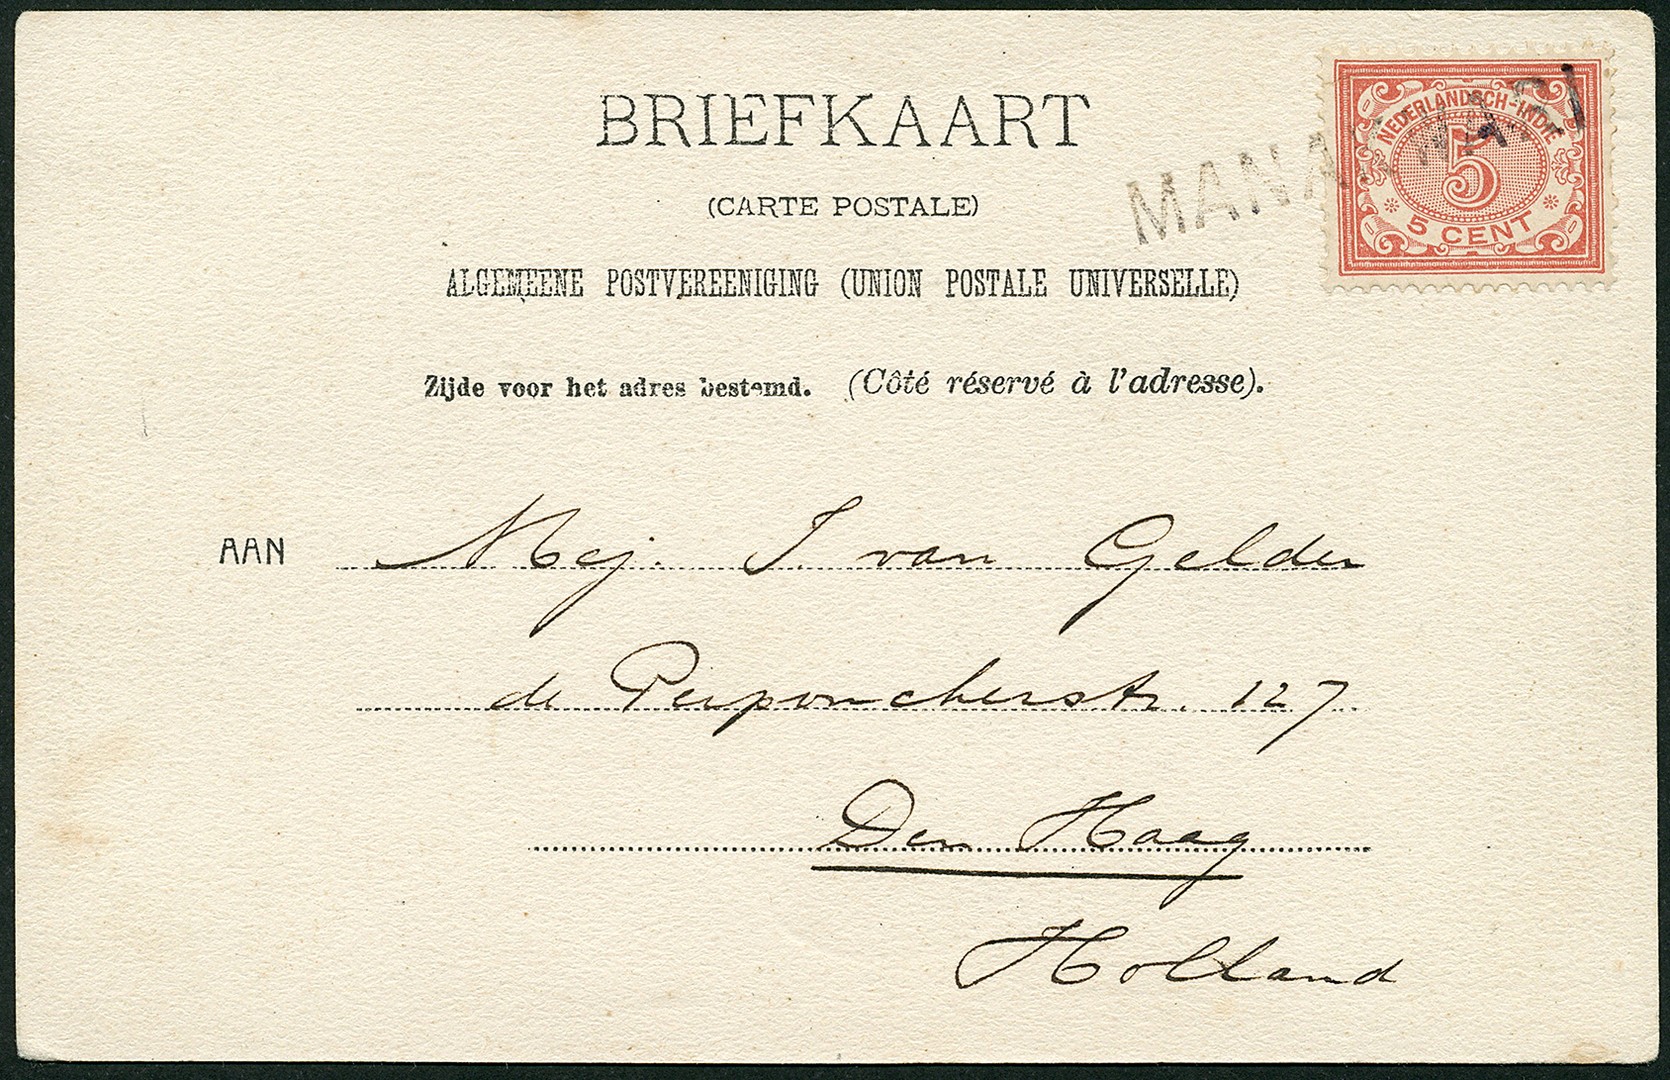 BRIEFKAART
(CARTE POSTALE)
ALGEMEENE POSTVEREENIGING (UNION POSTALE UNIVERSELLE)
Zijde voor het adres bestemd. (Côté réservé à l'adresse).
NEDERLANDSCH-INDIE
5
5 CENT
MANAKWARI
AAN Mej. J. van Gelder
de Perponcherstr. 127
Den Haag
Holland